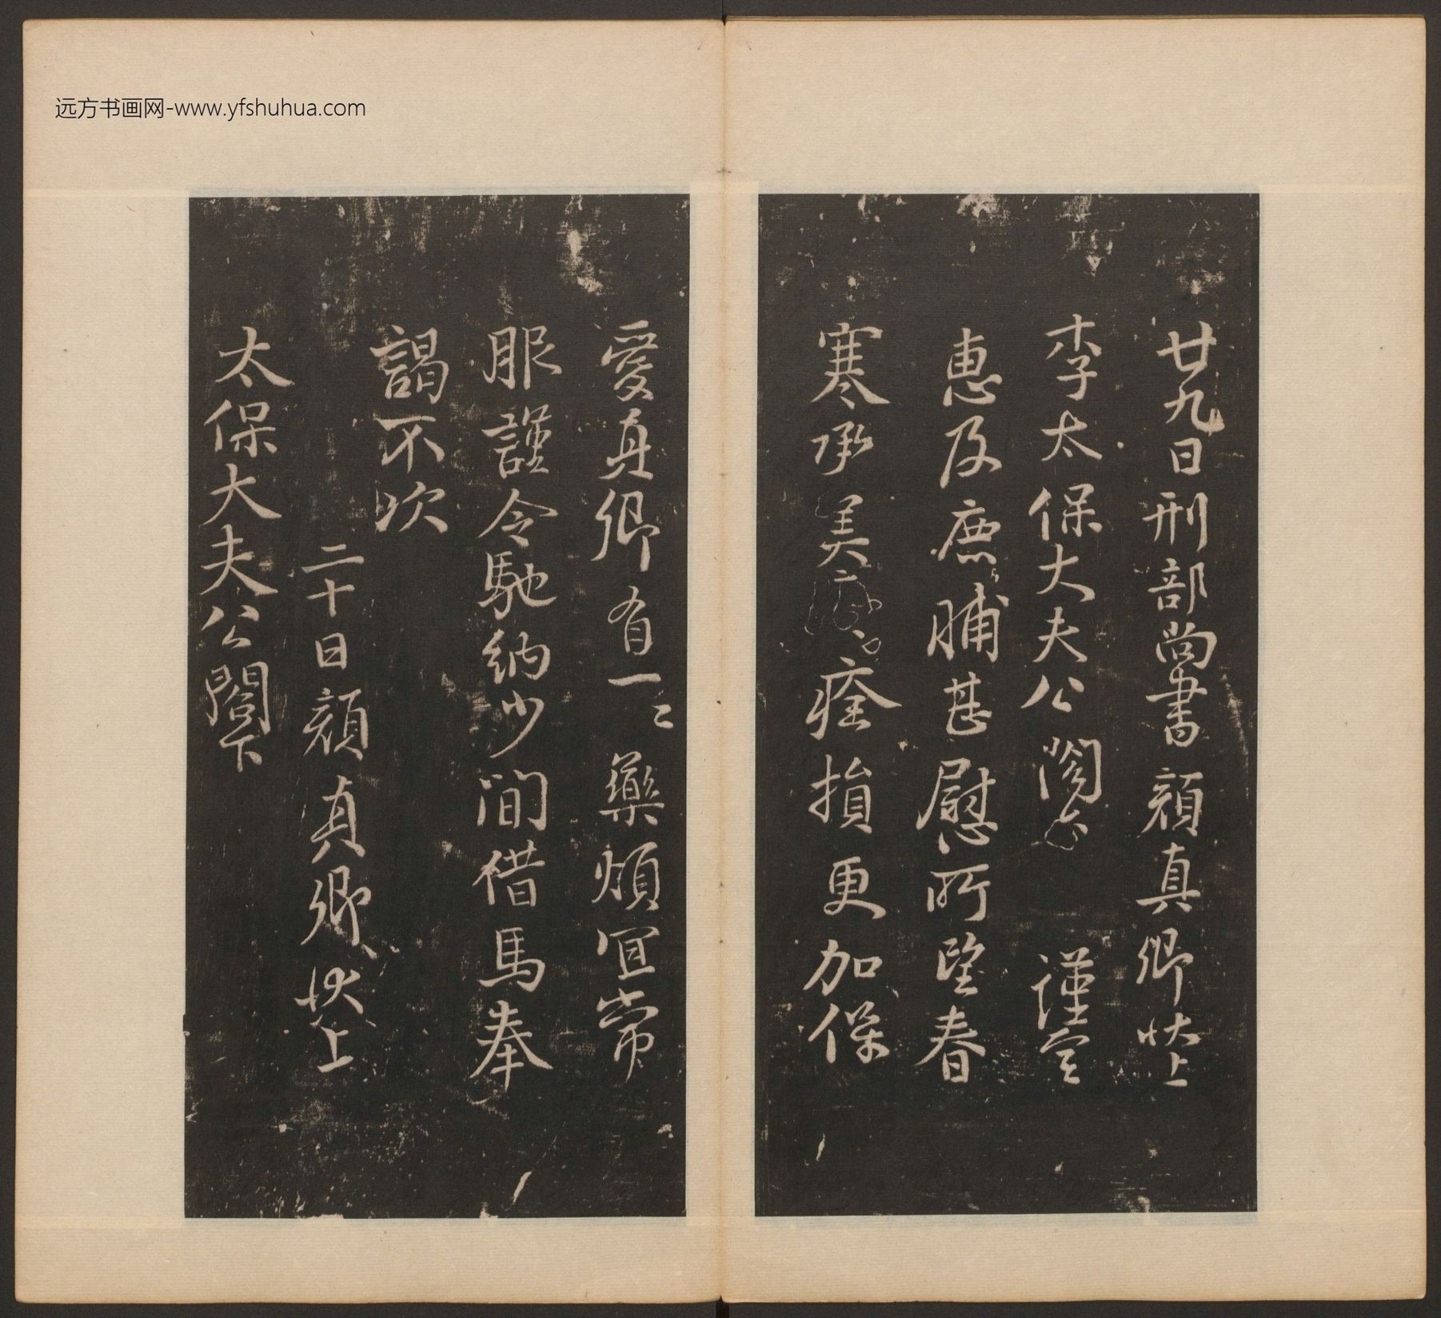 远方书画网-www.yfshuhua.com
廿九日刑部尚書顔真卿状上
李太保大夫公閤下 謹空
惠及鹿脯甚慰所望春
寒承美疹痊損更加保
愛真卿有一二藥煩宜常
服謹令馳納少間借馬奉
謁不次
二十日顔真卿状上
太保大夫公閤下